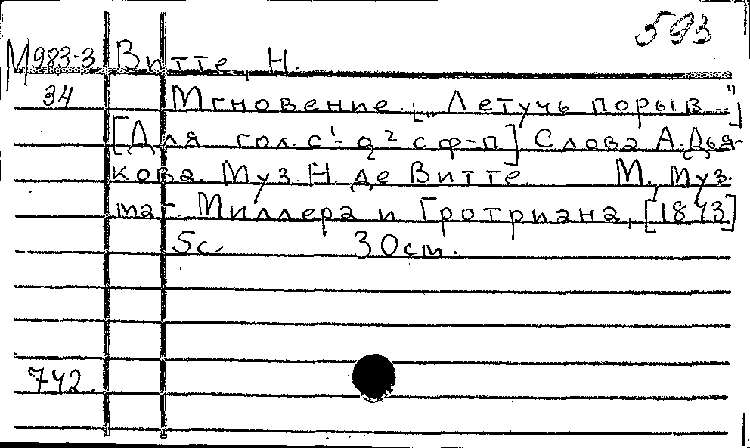 593
М983-3 Витте, Н.
34 Мгновение. [„Летучь порыв..."]
[Для гол. с¹-g² с ф-п] Слова А. Дья-
кова. Муз. Н. де Витте. М., муз.
маг. Миллера и Гротриана, [1873]
5с. 30см.
742.